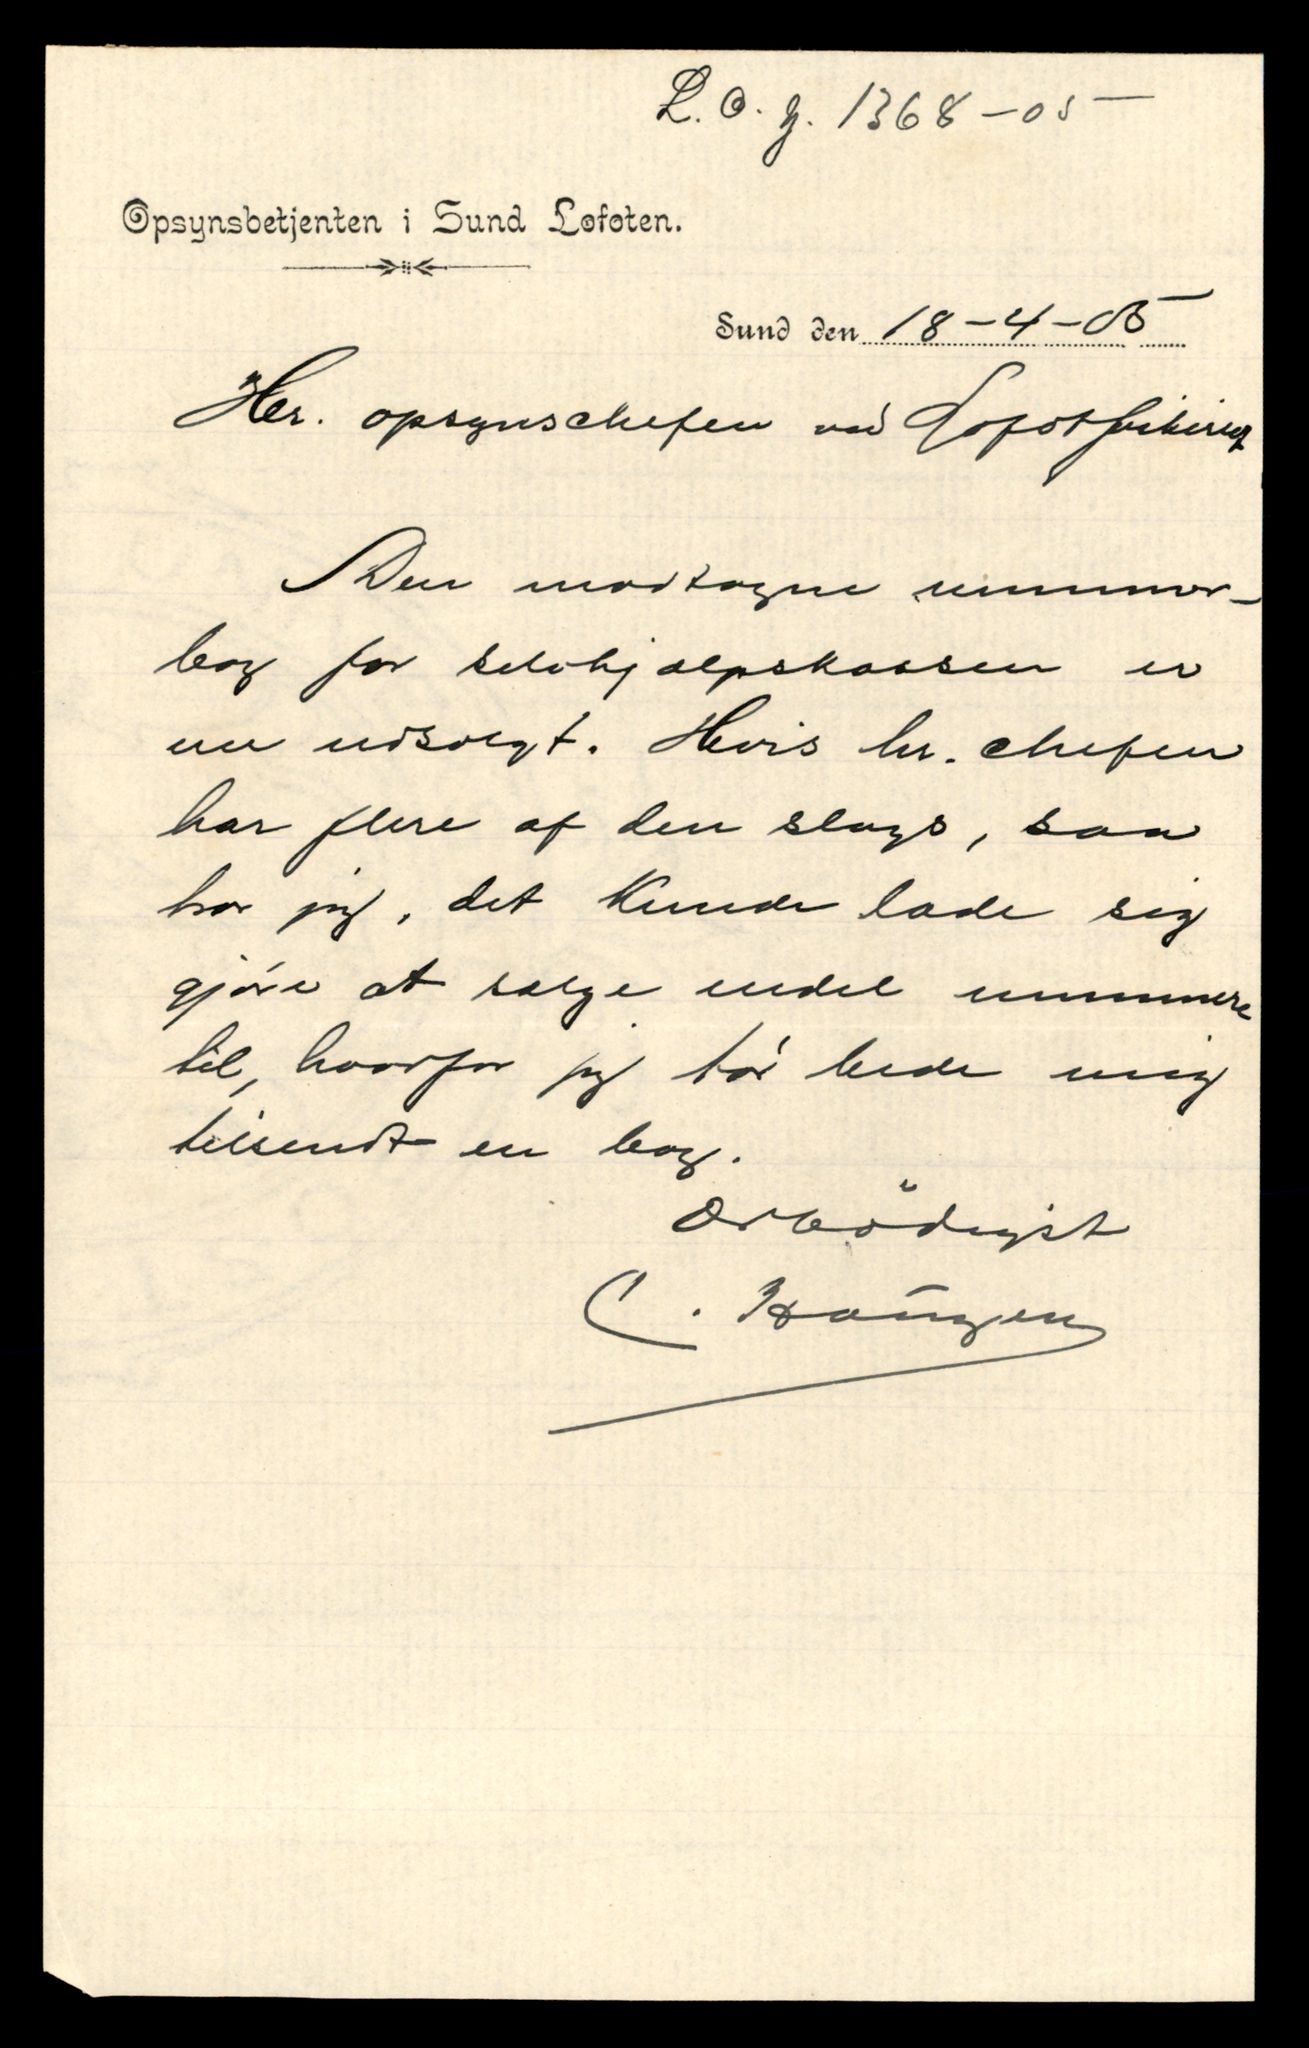 L. O. J. 1368-05
Opsynsbetjenten i Sund Lofoten.
Sund den 18-4-05
Her. opsynschefen ved Lofotfiskeriet
Den modtagne nummer-
bog for selvhjælpskassen er
nu udsolgt. Hvis hr. chefen
har flere af den slags, saa
tror jeg, det kunde lade sig
gjøre at sælge endel nummere
til, hvorfor jeg tør bede mig
tilsendt en bog.
Ærbødigst
C. Haugen